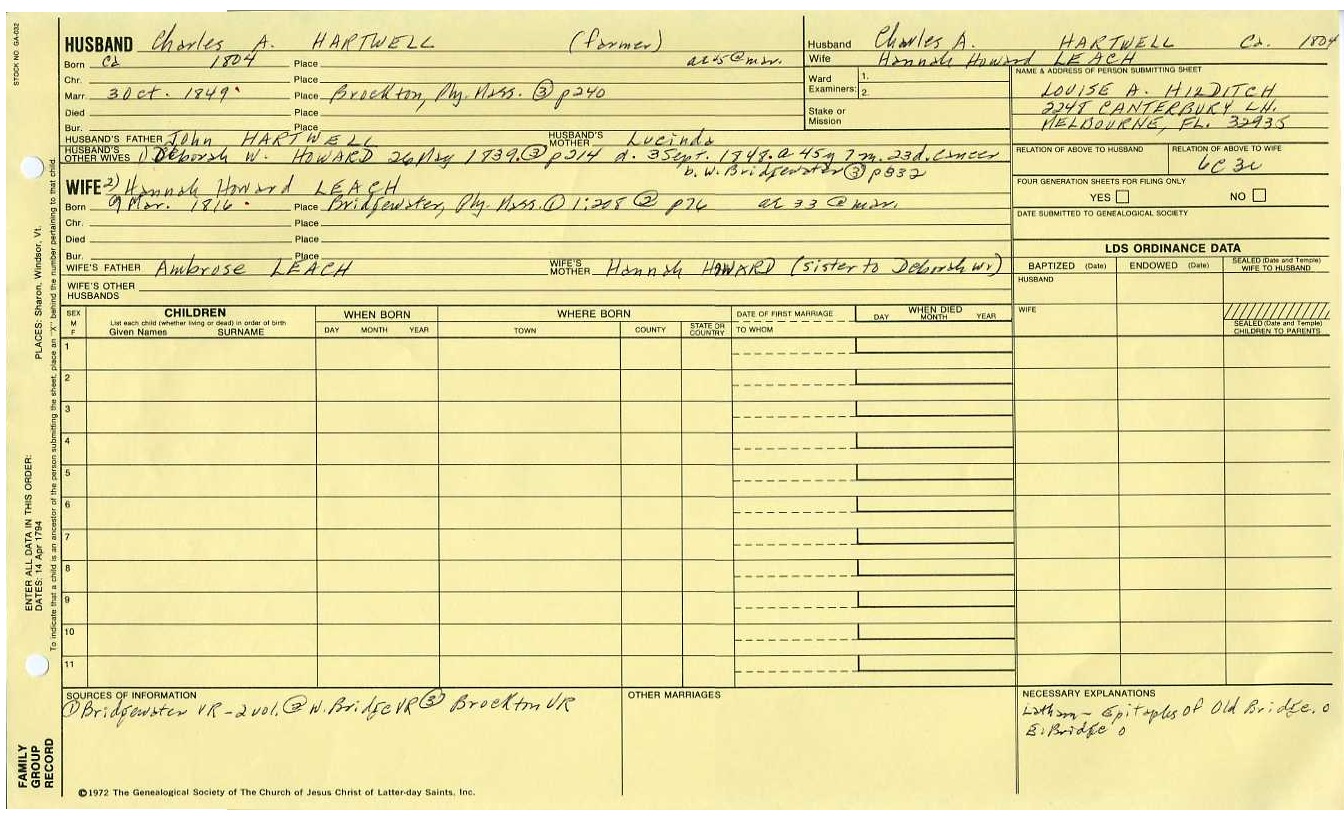 STOCK NO. GA-032
HUSBAND Charles A. HARTWELL (farmer)
Born Ca 1804 Place at 45 @ mar.
Chr. Place
Marr. 30 Oct. 1849 Place Brockton, Ply. Mass. ③ p240
Died Place
Bur. Place
HUSBAND'S FATHER John HARTWELL HUSBAND'S MOTHER Lucinda
HUSBAND'S OTHER WIVES 1) Deborah W. HOWARD 26 May 1839. ③ p214 d. 3 Sept. 1848. a 45y 7m. 23d. cancer
b. W. Bridgewater ③ p332
WIFE 2) Hannah Howard LEACH
Born 9 Mar. 1816 Place Bridgewater, Ply. Mass. ① 1:208 ② p76 at 33 @ mar.
Chr. Place
Died Place
Bur. Place
WIFE'S FATHER Ambrose LEACH WIFE'S MOTHER Hannah HOWARD (sister to Deborah W.)
WIFE'S OTHER HUSBANDS
Husband Charles A. HARTWELL Ca. 1804
Wife Hannah Howard LEACH
Ward Examiners: 1.
2.
Stake or Mission
NAME & ADDRESS OF PERSON SUBMITTING SHEET
LOUISE A. HILDITCH
2248 CANTERBURY LN.
MELBOURNE, FL. 32935
RELATION OF ABOVE TO HUSBAND RELATION OF ABOVE TO WIFE
6C 3r
FOUR GENERATION SHEETS FOR FILING ONLY
YES NO
DATE SUBMITTED TO GENEALOGICAL SOCIETY
LDS ORDINANCE DATA
BAPTIZED (Date) ENDOWED (Date) SEALED (Date and Temple) WIFE TO HUSBAND
HUSBAND
WIFE
SEALED (Date and Temple) CHILDREN TO PARENTS
SEX M F CHILDREN WHEN BORN WHERE BORN DATE OF FIRST MARRIAGE WHEN DIED
List each child (whether living or dead) in order of birth
Given Names SURNAME DAY MONTH YEAR TOWN COUNTY STATE OR COUNTRY TO WHOM DAY MONTH YEAR
1
2
3
4
5
6
7
8
9
10
11
SOURCES OF INFORMATION
① Bridgewater VR - 2 vol. ② W. Bridge VR ③ Brockton VR
OTHER MARRIAGES
NECESSARY EXPLANATIONS
Latham - Epitaphs of Old Bridge. o
E. Bridge o
PLACES: Sharon, Windsor, Vt.
ENTER ALL DATA IN THIS ORDER:
DATES: 14 Apr 1794
To indicate that a child is an ancestor of the person submitting the sheet, place an "X" behind the number pertaining to that child.
FAMILY GROUP RECORD
©1972 The Genealogical Society of The Church of Jesus Christ of Latter-day Saints, Inc.